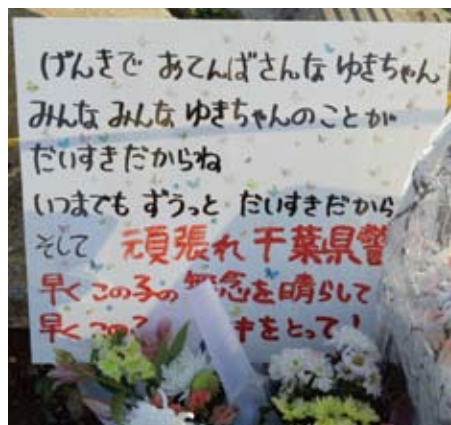 げんきで おてんばさんな ゆきちゃん
みんな みんな ゆきちゃんのことが
だいすきだからね
いつまでも ずうっと だいすきだから
そして 頑張れ 千葉県警
早く この子の 無念を晴らして
早く この をとって！